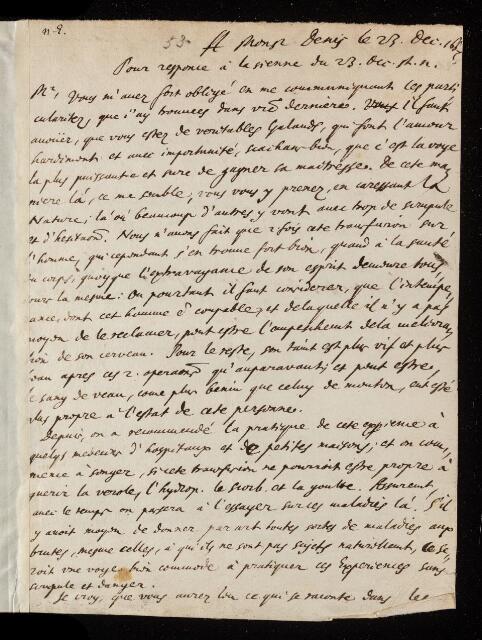 n. 2.
53
A Monsr Denis le 23. Dec. 166
Pour responce à la sienne du 23. Dec. st. n.
Mr, Vous m'avez fort obligé en me communiquant les parti
cularitez, que j'ay trouvees dans vre derniere. Il faut
avoüer, que vous estes de veritables Galands, qui font l'amour
hardiment et avec importunité, scachans bien, que c'est la voye
la plus puissante et sure de gagner sa maitresse. De cete ma
niere là, ce me semble, vous vous y prenez, en caressant la
Nature; là où beaucoup d'autres y vont avec trop de scrupule
et d'hesitaon. Nous n'avons fait que 2 fois cete transfusion sur
l'homme, qui cependant s'en trouve fort bien, quand à la santé
du corps, quoyque l'extravagance de son esprit demeure tous
jours la mesme: Ou pourtant il faut considerer, que l'intempe
rance, dont cet homme est coupable, et de laquelle il n'y a pas
moyen de le reclamer, peut estre l'empechent de la meliora
tion de son cerveau. Pour le reste, son teint est plus vif et plus
beau apres ces 2. operaons qu'auparavant; et peut estre,
le sang de veau, come plus benin que celuy de mouton, eut esté
plus propre à l'estat de cete personne.
Depuis, on a recommendé la pratique de cete experience à
quelqs medecins d'hospitaux et de petites maisons; et on com
mence à songer, si cete transfusion ne pourroit estre propre à
guerir la verole, l'hydrop. le scorb. et la goutte. Assurent,
avec le temps on passera à l'essayer sur ces maladies là. S'il
y avoit moyen de donner par art toutes sortes de maladies aux
brutes, mesme celles, à qui ils ne sont pas sujets naturellemt, ce se
roit une voye bien commode à pratiquer ces Experiences sans
scrupule et danger.
Je croy, que vous aurez leu ce qui se raconte dans le